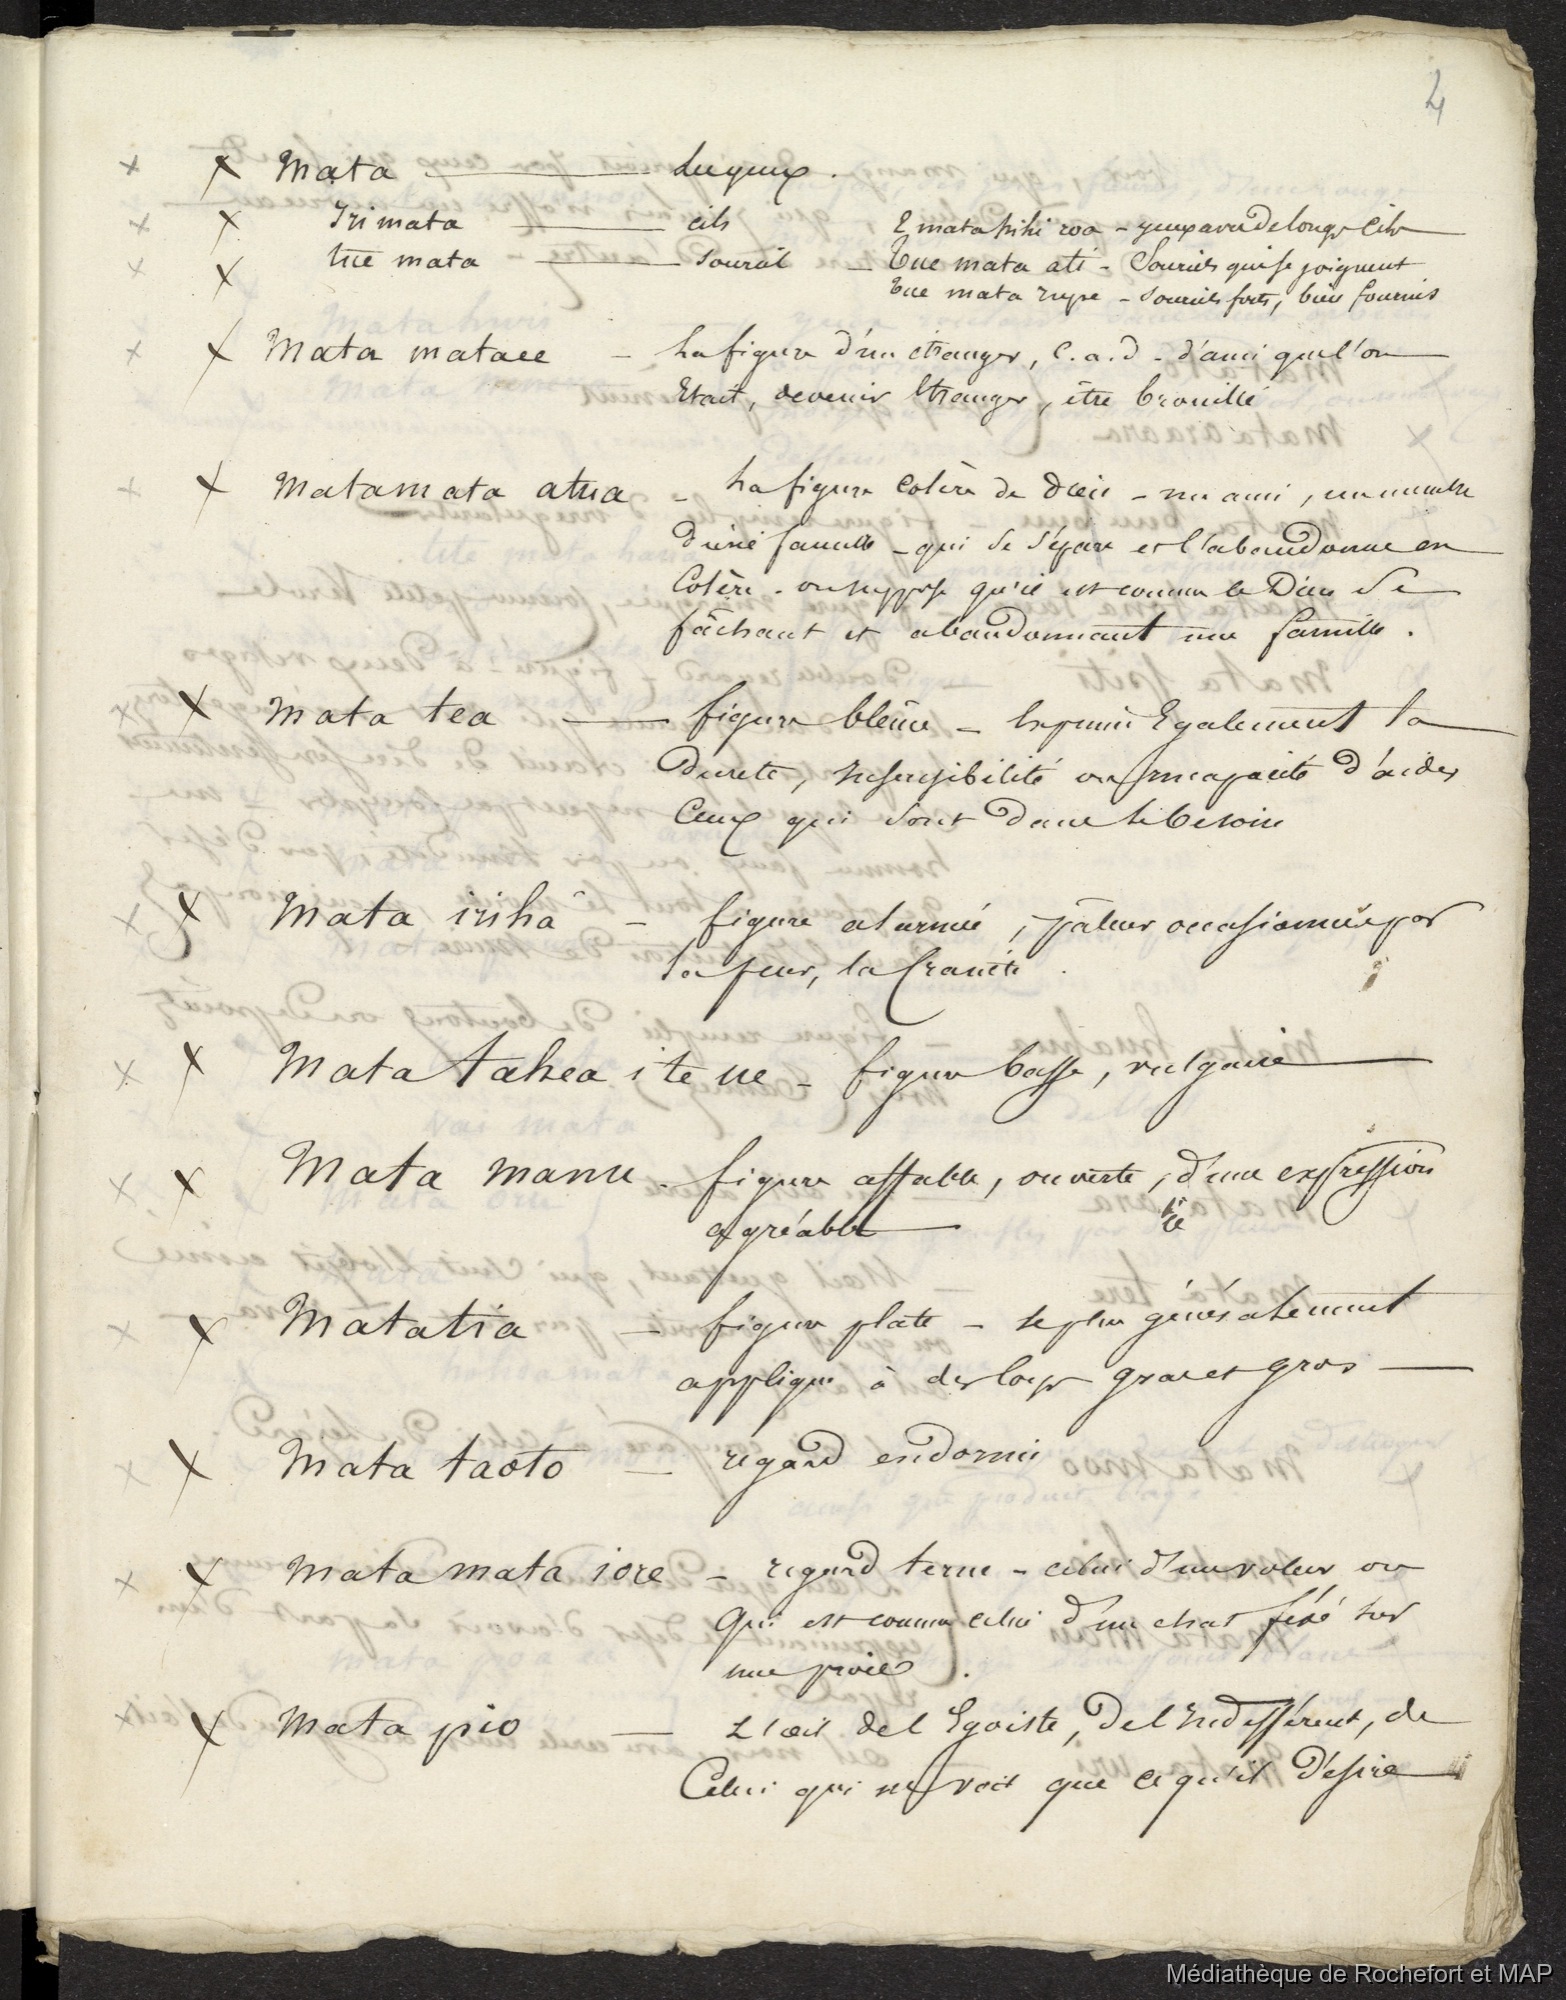 4
x x Mata — Les yeux.
x x Iri mata — cils E mata hihi roa - yeux avec de longs cils —
x x tue mata — sourcil — Tue mata ati - Sourcils qui se joignent
Tue mata rupe - sourcils forts, bien fournis
x x Mata mataee — La figure d'un étranger, C.a.d - d'ami que l'on —
Etait, devenir Etranger, être brouillé
x x Matamata atua - La figure colère de Dieu - un ami, un membre
d'une famille - qui se sépare et l'abandonne en
Colère - on suppose qu'il est comme le Dieu se
fâchant et abandonnant une famille.
x Mata tea — figure blême - Exprime Egalement la
Dureté, Insensibilité ou incapacité d'aider
Ceux qui sont dans le besoin
x x Mata irihâ — figure alarmée, pâleur occasionnée par
la peur, la Crainte.
x x Mata tahea i te ue - figure basse, vulgaire —
x x Mata manu - figure affable, ouverte, d'une expression
agréable —
x x Matatia — figure plate - le plus généralement
applique à des corps gras et gros —
x x Mata taoto — regard endormi
x x Mata mata iore - regard terne - celui d'un voleur, ou
qui est comme celui d'un chat fixé sur
une proie.
x x Mata pio — L'œil de l'Egoiste, de l'Indifférent, de
Celui qui ne voit que ce qu'il désire
Médiathèque de Rochefort et MAP